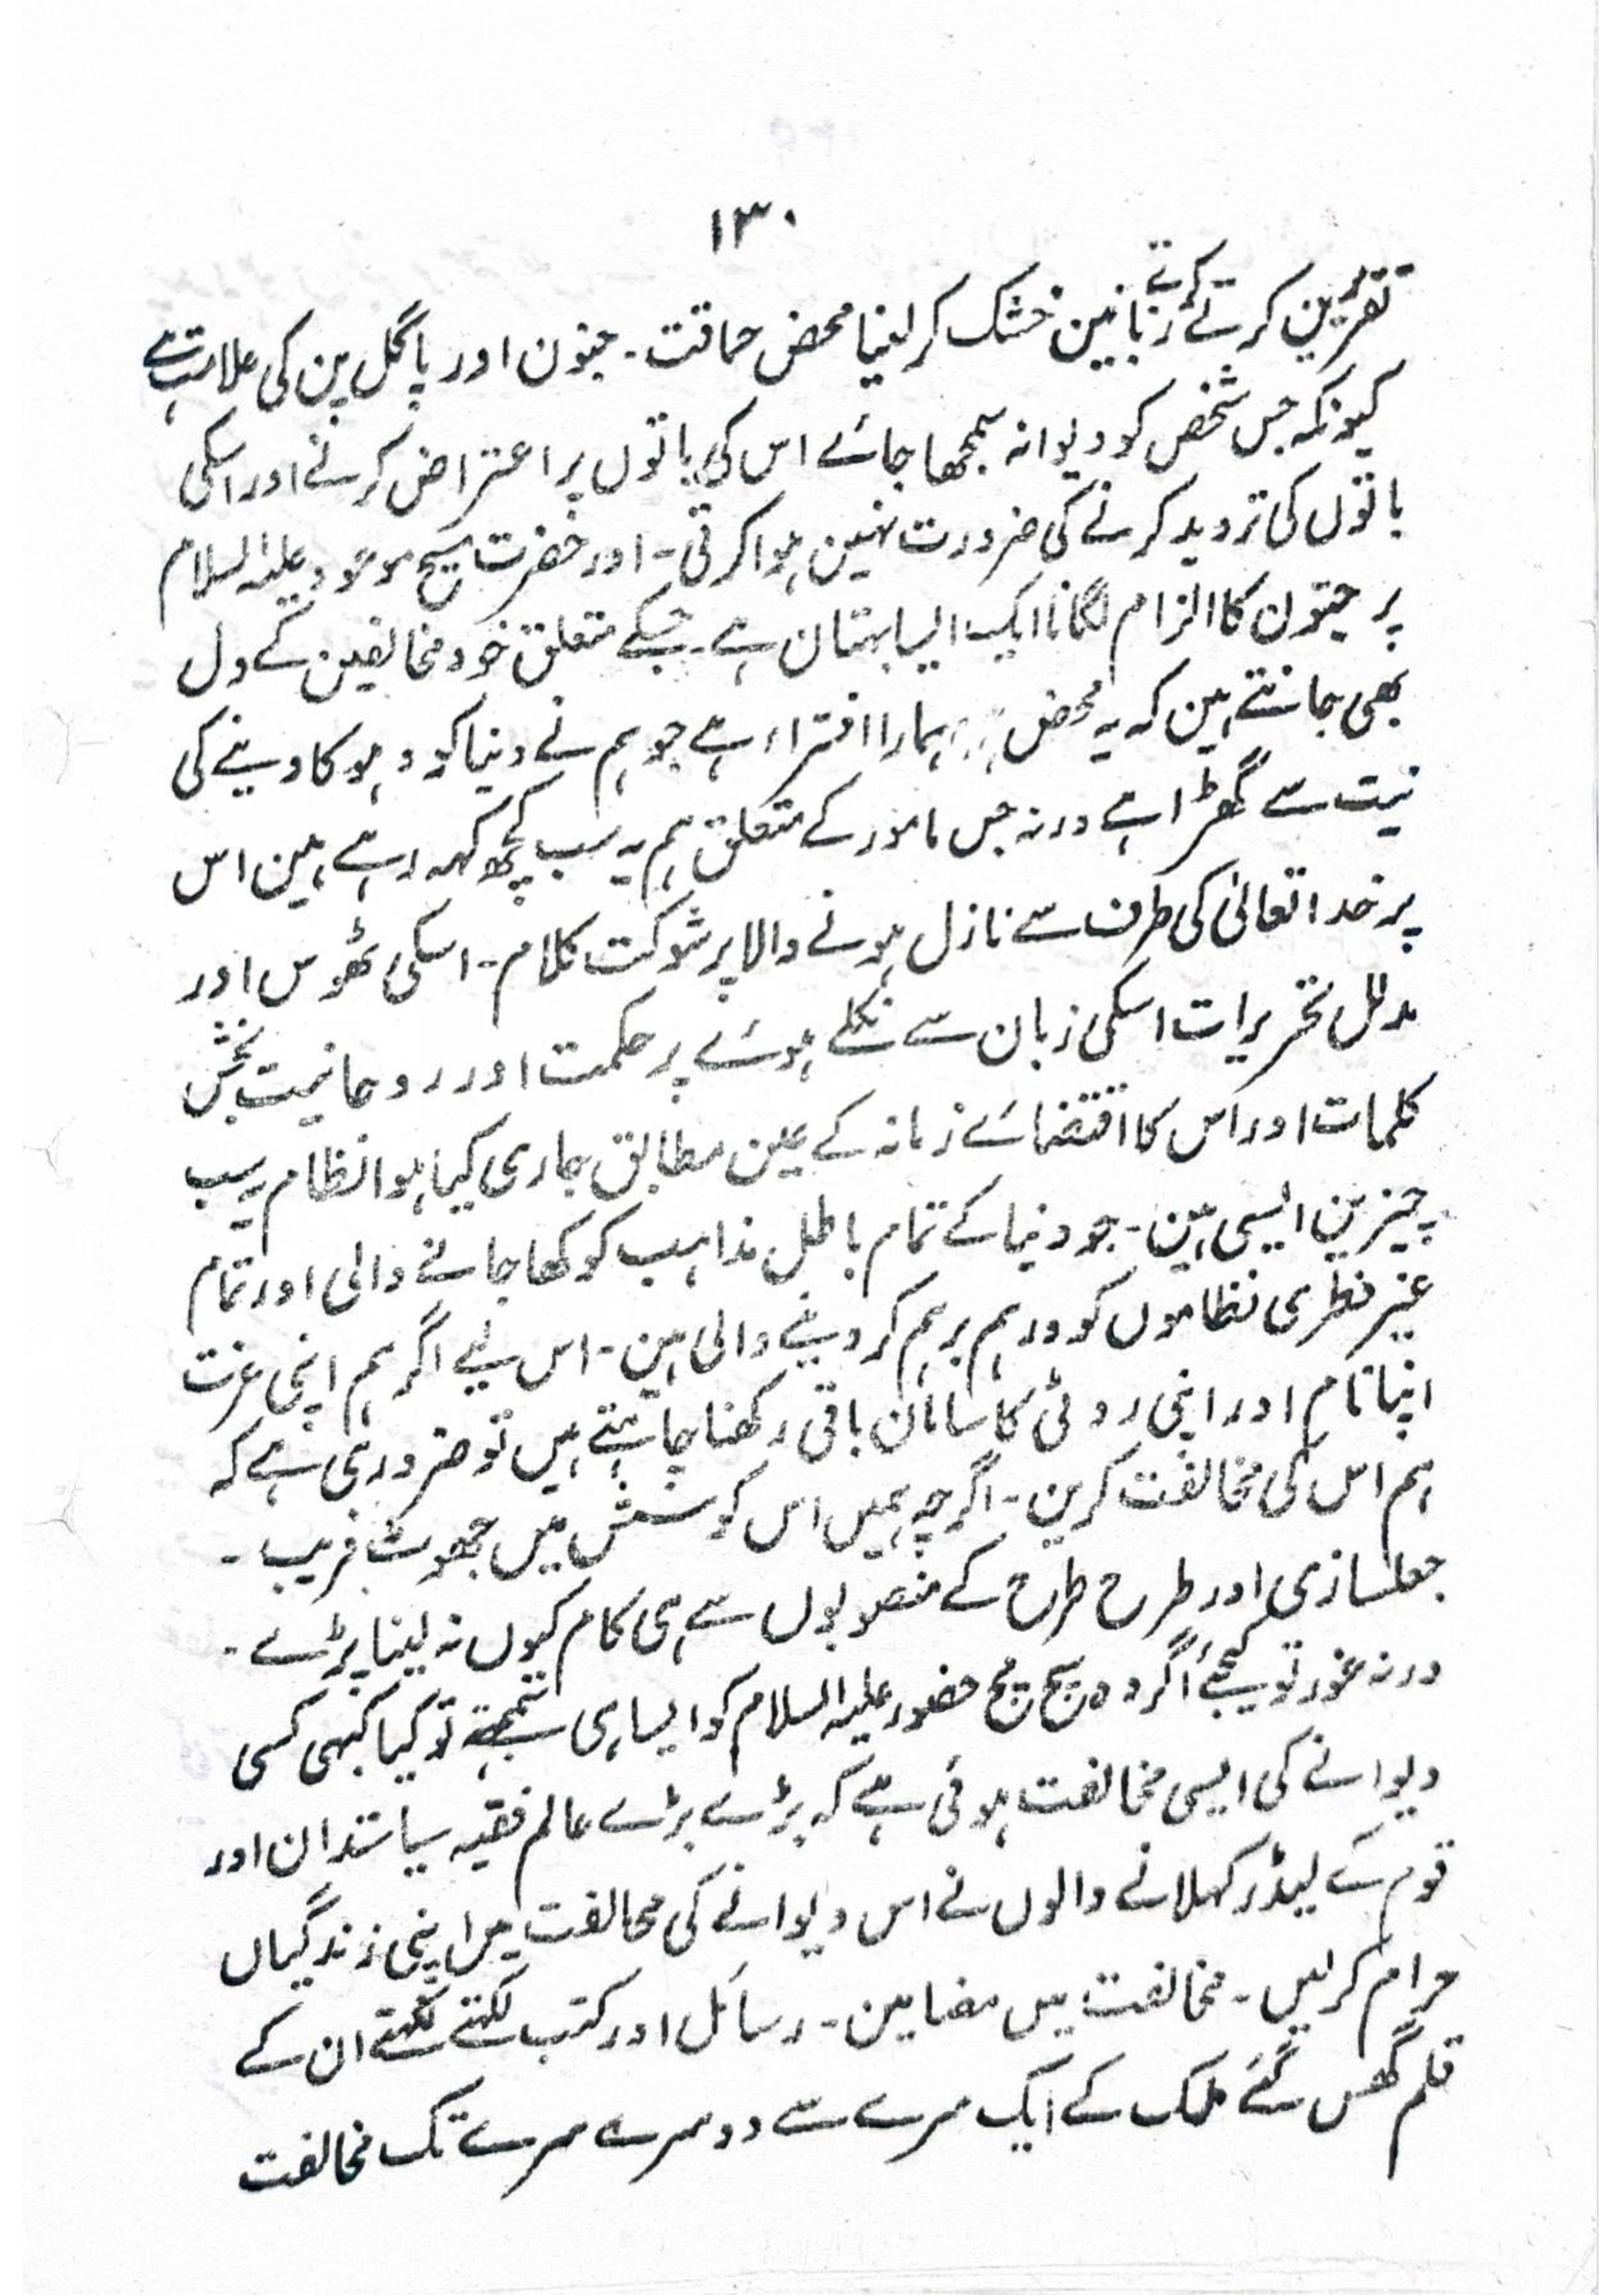 ۱۳۰
تقریرین کرتے کرتے زبانین خشک کر لینا محض حماقت۔ جنون اور پاگل پن کی علامت ہے
کیونکہ جس شخص کو دیوانہ سمجھا جائے اس کی باتوں پر اعتراض کرنے اور اسکی
باتوں کی تردید کرنے کی ضرورت نہین ہوا کرتی۔ اور حضرت مسیح موعود علیہ السلام
پر جنون کا الزام لگانا ایک ایسا بہتان ہے۔ جسکے متعلق خود مخالفین کے دل
بھی جانتے ہین کہ یہ محض ہمارا افتراء ہے جو ہم نے دنیا کو دہوکا دینے کی
نیت سے گھڑا ہے ورنہ جس مامور کے متعلق ہم یہ سب کچھ کہہ رہے ہین اس
پر خدا تعالیٰ کی طرف سے نازل ہونے والا پر شوکت کلام۔ اسکی ٹھوس اور
مدلل تحریرات اسکی زبان سے نکلے ہوئے پر حکمت اور روحانیت بخش
کلمات اور اس کا اقتضائے زمانہ کے عین مطابق جاری کیا ہوا نظام یہ سب
چیزین ایسی ہین۔ جو دنیا کے تمام باطل مذاہب کو کھا جانے والی اور تمام
غیر فطری نظاموں کو درہم برہم کر دینے والی ہین۔ اس لیے اگر ہم اپنی عزت
اپنا نام اور اپنی روٹی کا سامان باقی رکھنا چاہتے ہیں تو ضروری ہے کہ
ہم اس کی مخالفت کرین۔ اگرچہ ہمیں اس کوشش میں جھوٹ فریب۔
جعلسازی اور طرح طرح کے منصوبوں سے ہی کام کیوں نہ لینا پڑے۔
ورنہ غور تو کیجئے اگر وہ سچ مچ حضور علیہ السلام کو ایسا ہی سمجھتے تو کیا کبہی کسی
دیوانے کی ایسی مخالفت ہوئی ہے کہ بڑے بڑے عالم فقیہ سیاستدان اور
قوم کے لیڈر کہلانے والوں نے اس دیوانے کی مخالفت میں اپنی زندگیاں
حرام کرلیں۔ مخالفت میں مضامین۔ رسائل اور کتب لکہتے لکہتے ان کے
قلم گھس گئے ملک کے ایک سرے سے دوسرے سرے تک مخالفت